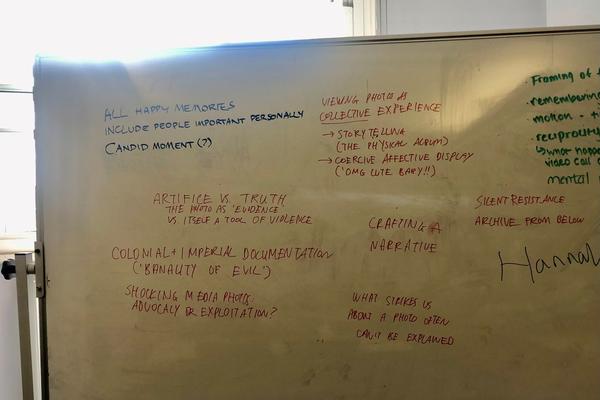 ALL HAPPY MEMORIES
INCLUDE PEOPLE IMPORTANT PERSONALLY
CANDID MOMENT (?)
VIEWING PHOTOS AS
COLLECTIVE EXPERIENCE
→ STORYTELLING
(THE PHYSICAL ALBUM)
→ COERCIVE AFFECTIVE DISPLAY
('OMG CUTE BABY!!')
Framing of
• remembering
motion - 
• reciprocity
what
video call
mental
ARTIFICE VS. TRUTH
THE PHOTO AS 'EVIDENCE'
VS ITSELF A TOOL OF VIOLENCE
COLONIAL + IMPERIAL DOCUMENTATION
('BANALITY OF EVIL')
SHOCKING MEDIA PHOTOS:
ADVOCACY OR EXPLOITATION?
CRAFTING A
NARRATIVE
WHAT STRIKES US
ABOUT A PHOTO OFTEN
CAN'T BE EXPLAINED
SILENT RESISTANCE
ARCHIVE FROM BELOW
Hannah